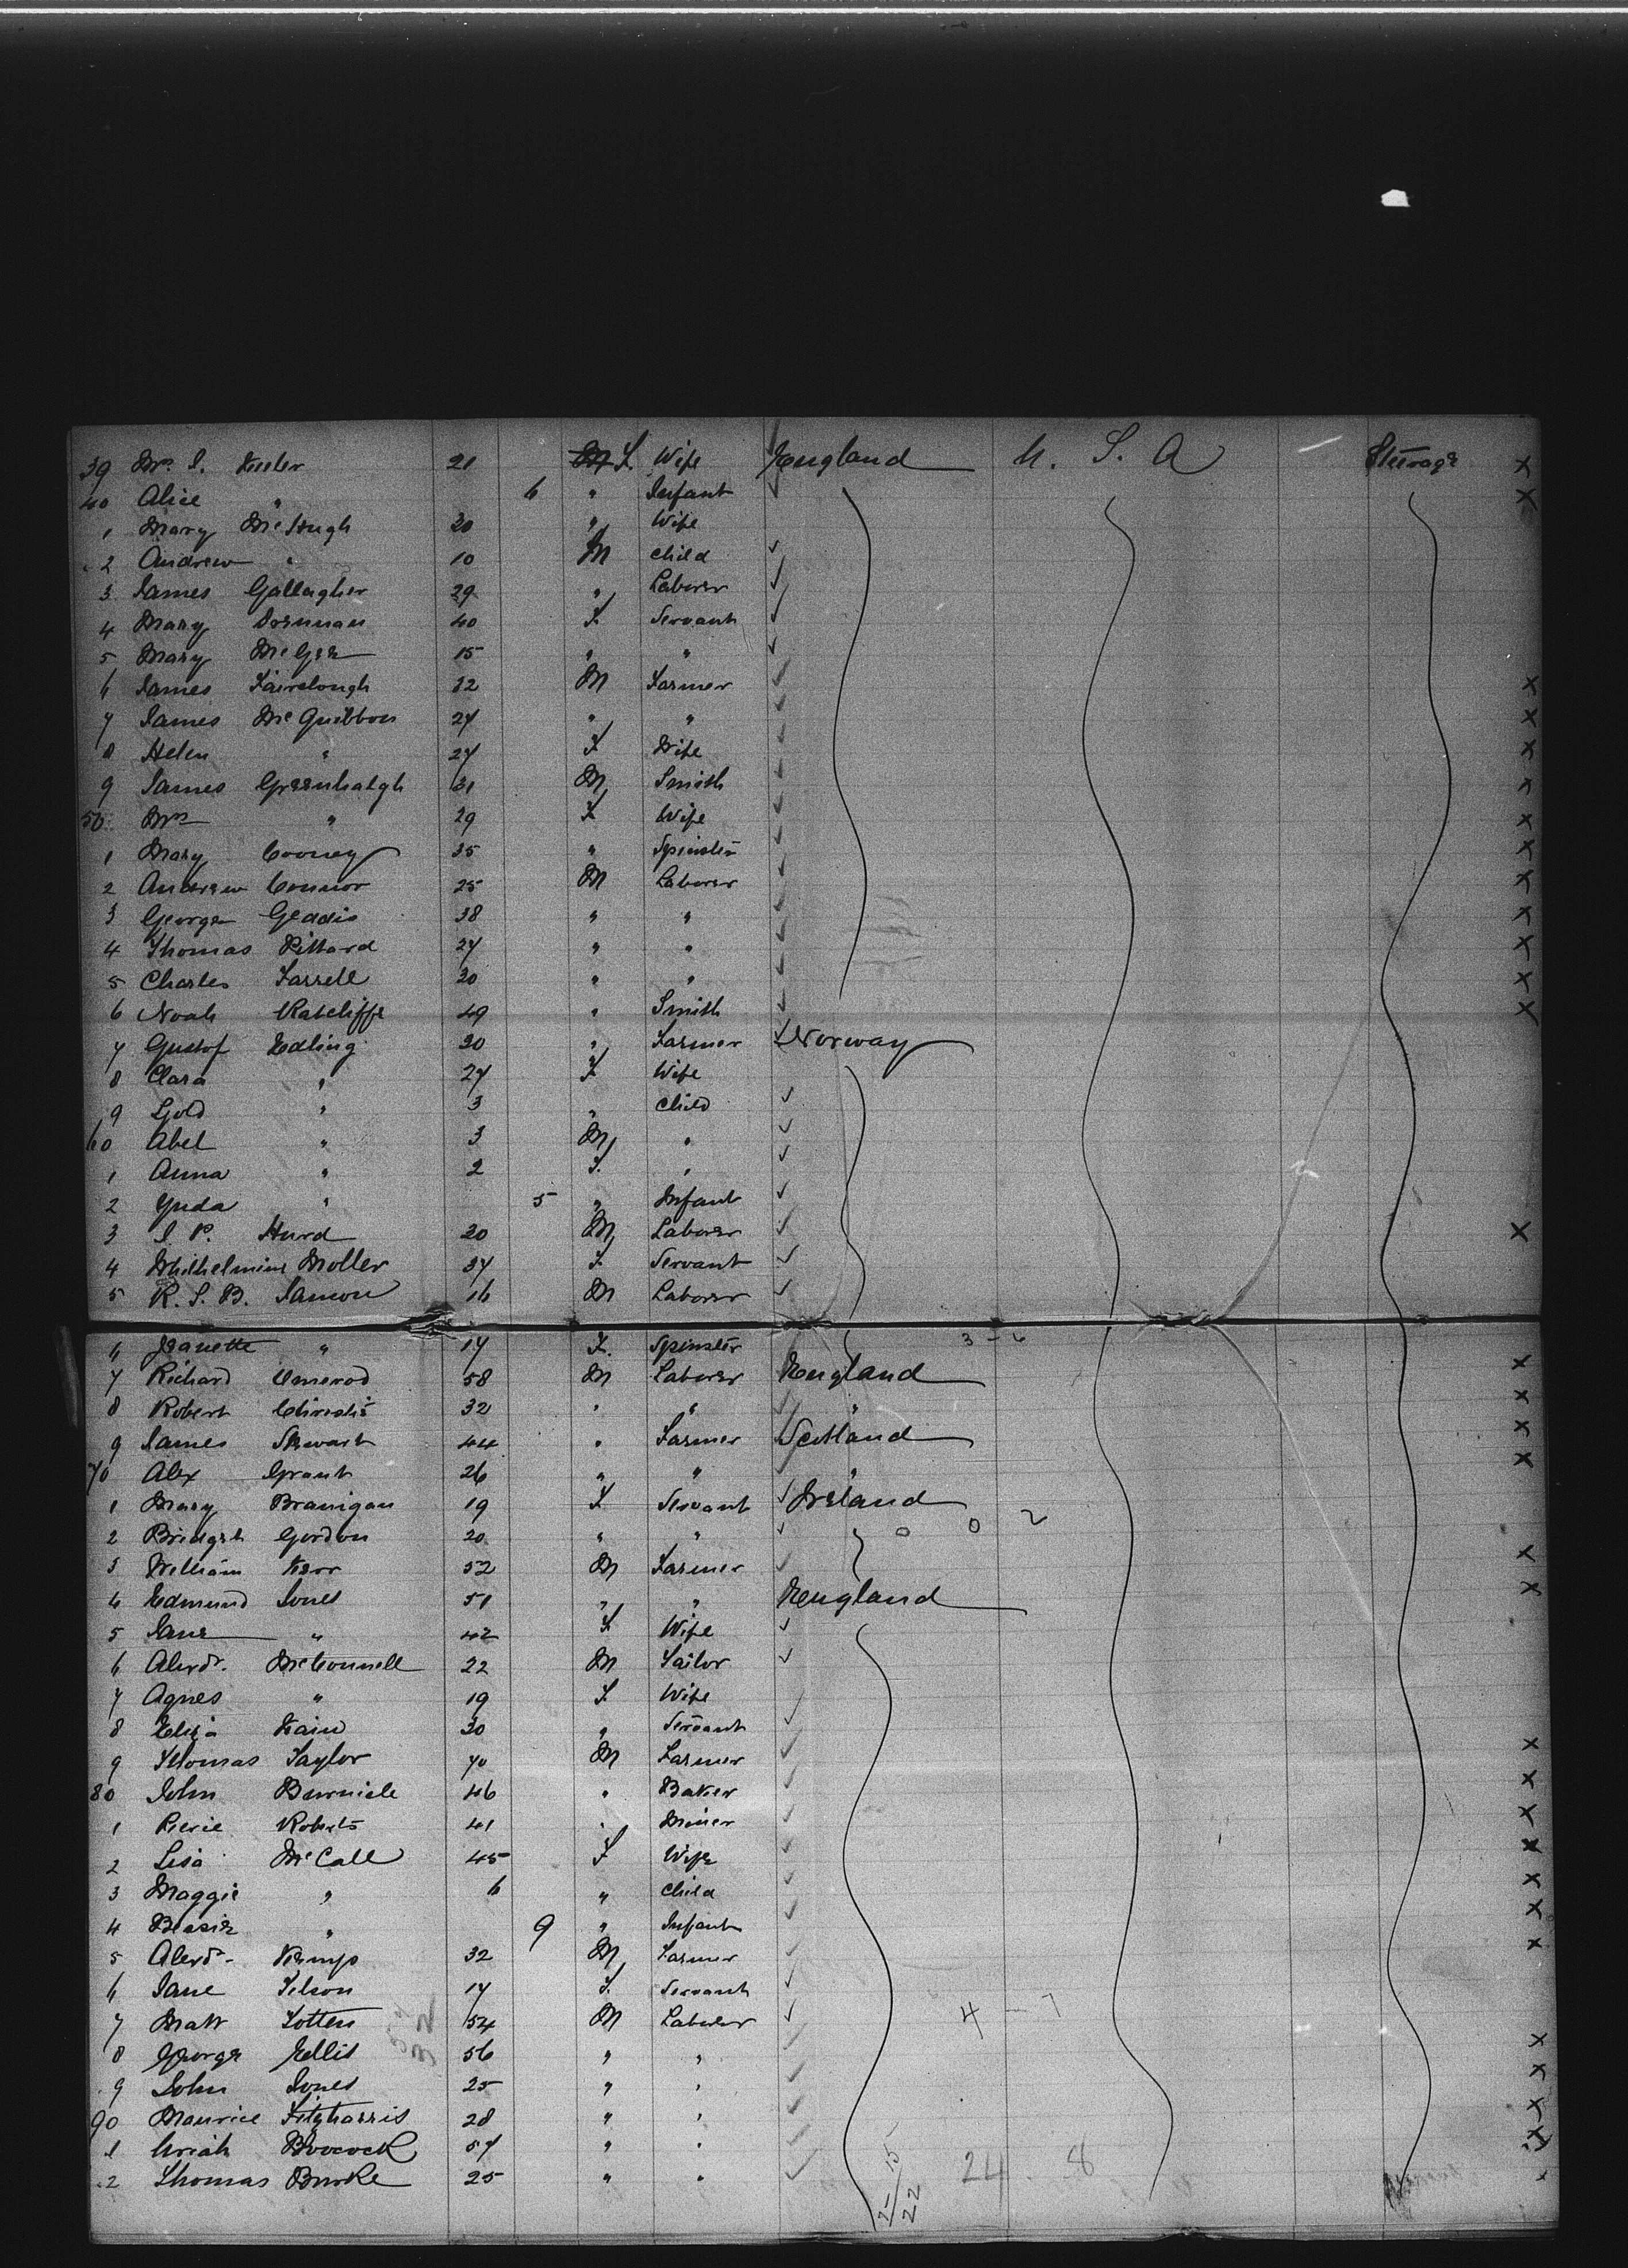 39 Mrs. I. Keeler 21 F. Wife England U. S. A Steerage X
40 Alice " 6 " Infant X
1 Mary McHugh 30 " Wife
2 Andrew " 10 M Child
3 James Gallagher 29 " Laborer
4 Mary Dornnan 40 F Servant
5 Mary McGee 15 " "
6 James Fairclough 32 M Farmer X
7 James McQuibbon 27 " " X
8 Helen " 27 F Wife X
9 James Greenhalgh 31 M Smith X
50 Mrs " 29 F Wife X
1 Mary Cooney 35 " Spinster X
2 Andrew Connor 25 M Laborer X
3 George Geddis 38 " " X
4 Thomas Pittard 27 " " X
5 Charles Farrell 30 " " X
6 Noah Ratcliffe 49 " Smith X
7 Gustof Edling 30 " Farmer Norway
8 Clara " 27 F Wife
9 Gold " 3 " Child
60 Abel " 3 M "
1 Anna " 2 F. "
2 Yuda " 5 " Infant
3 I. P. Hurd 20 M Laborer X
4 Whilhelmine Moller 37 F Servant
5 R. S. B. Samon 16 M Laborer
6 Jeanette " 17 F. Spinster 3 - 6
7 Richard Omerod 58 M Laborer England X
8 Robert 32 " " " X
9 James Stewart 44 " Farmer Scotland X
70 Alex Grant 26 " " " X
1 Mary Branigan 19 F Servant Ireland
2 Bridget Gordon 20 " " 0 0 2
3 William Kerr 52 M Farmer X
4 Edmund Jones 51 " " England X
5 Jane " 42 F Wife
6 Alexdr. McConnell 22 M Tailor
7 Agnes " 19 F Wife
8 Eliza Kain 30 " Servant
9 Thomas Taylor 40 M Farmer X
80 John Burnicle 46 " Baker X
1 Roberts 41 " Miner X
2 Lisa McCall 45 F Wife X
3 Maggie " 6 " Child X
4 Bessie " 9 " Infant X
5 Alexdr. Kemp 32 M Farmer X
6 Jane Telson 17 F. Servant
7 Matt Totten 54 M Laborer 4 - 7
8 George Ellis 56 " " X
9 John Jones 25 " " X
90 Maurice Fitzharris 28 " " X
1 Uriah Boocock 57 " " X
2 Thomas Burke 25 " " 24 . 8
15
22